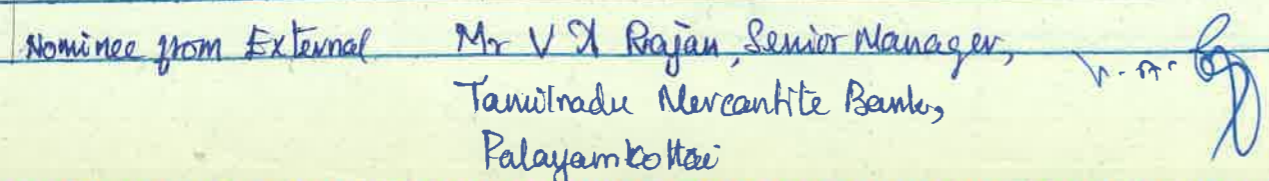 Nominee from External Mr V Rajan, Senior Manager,
Tamilnadu Mercantile Bank,
Palayamkottai